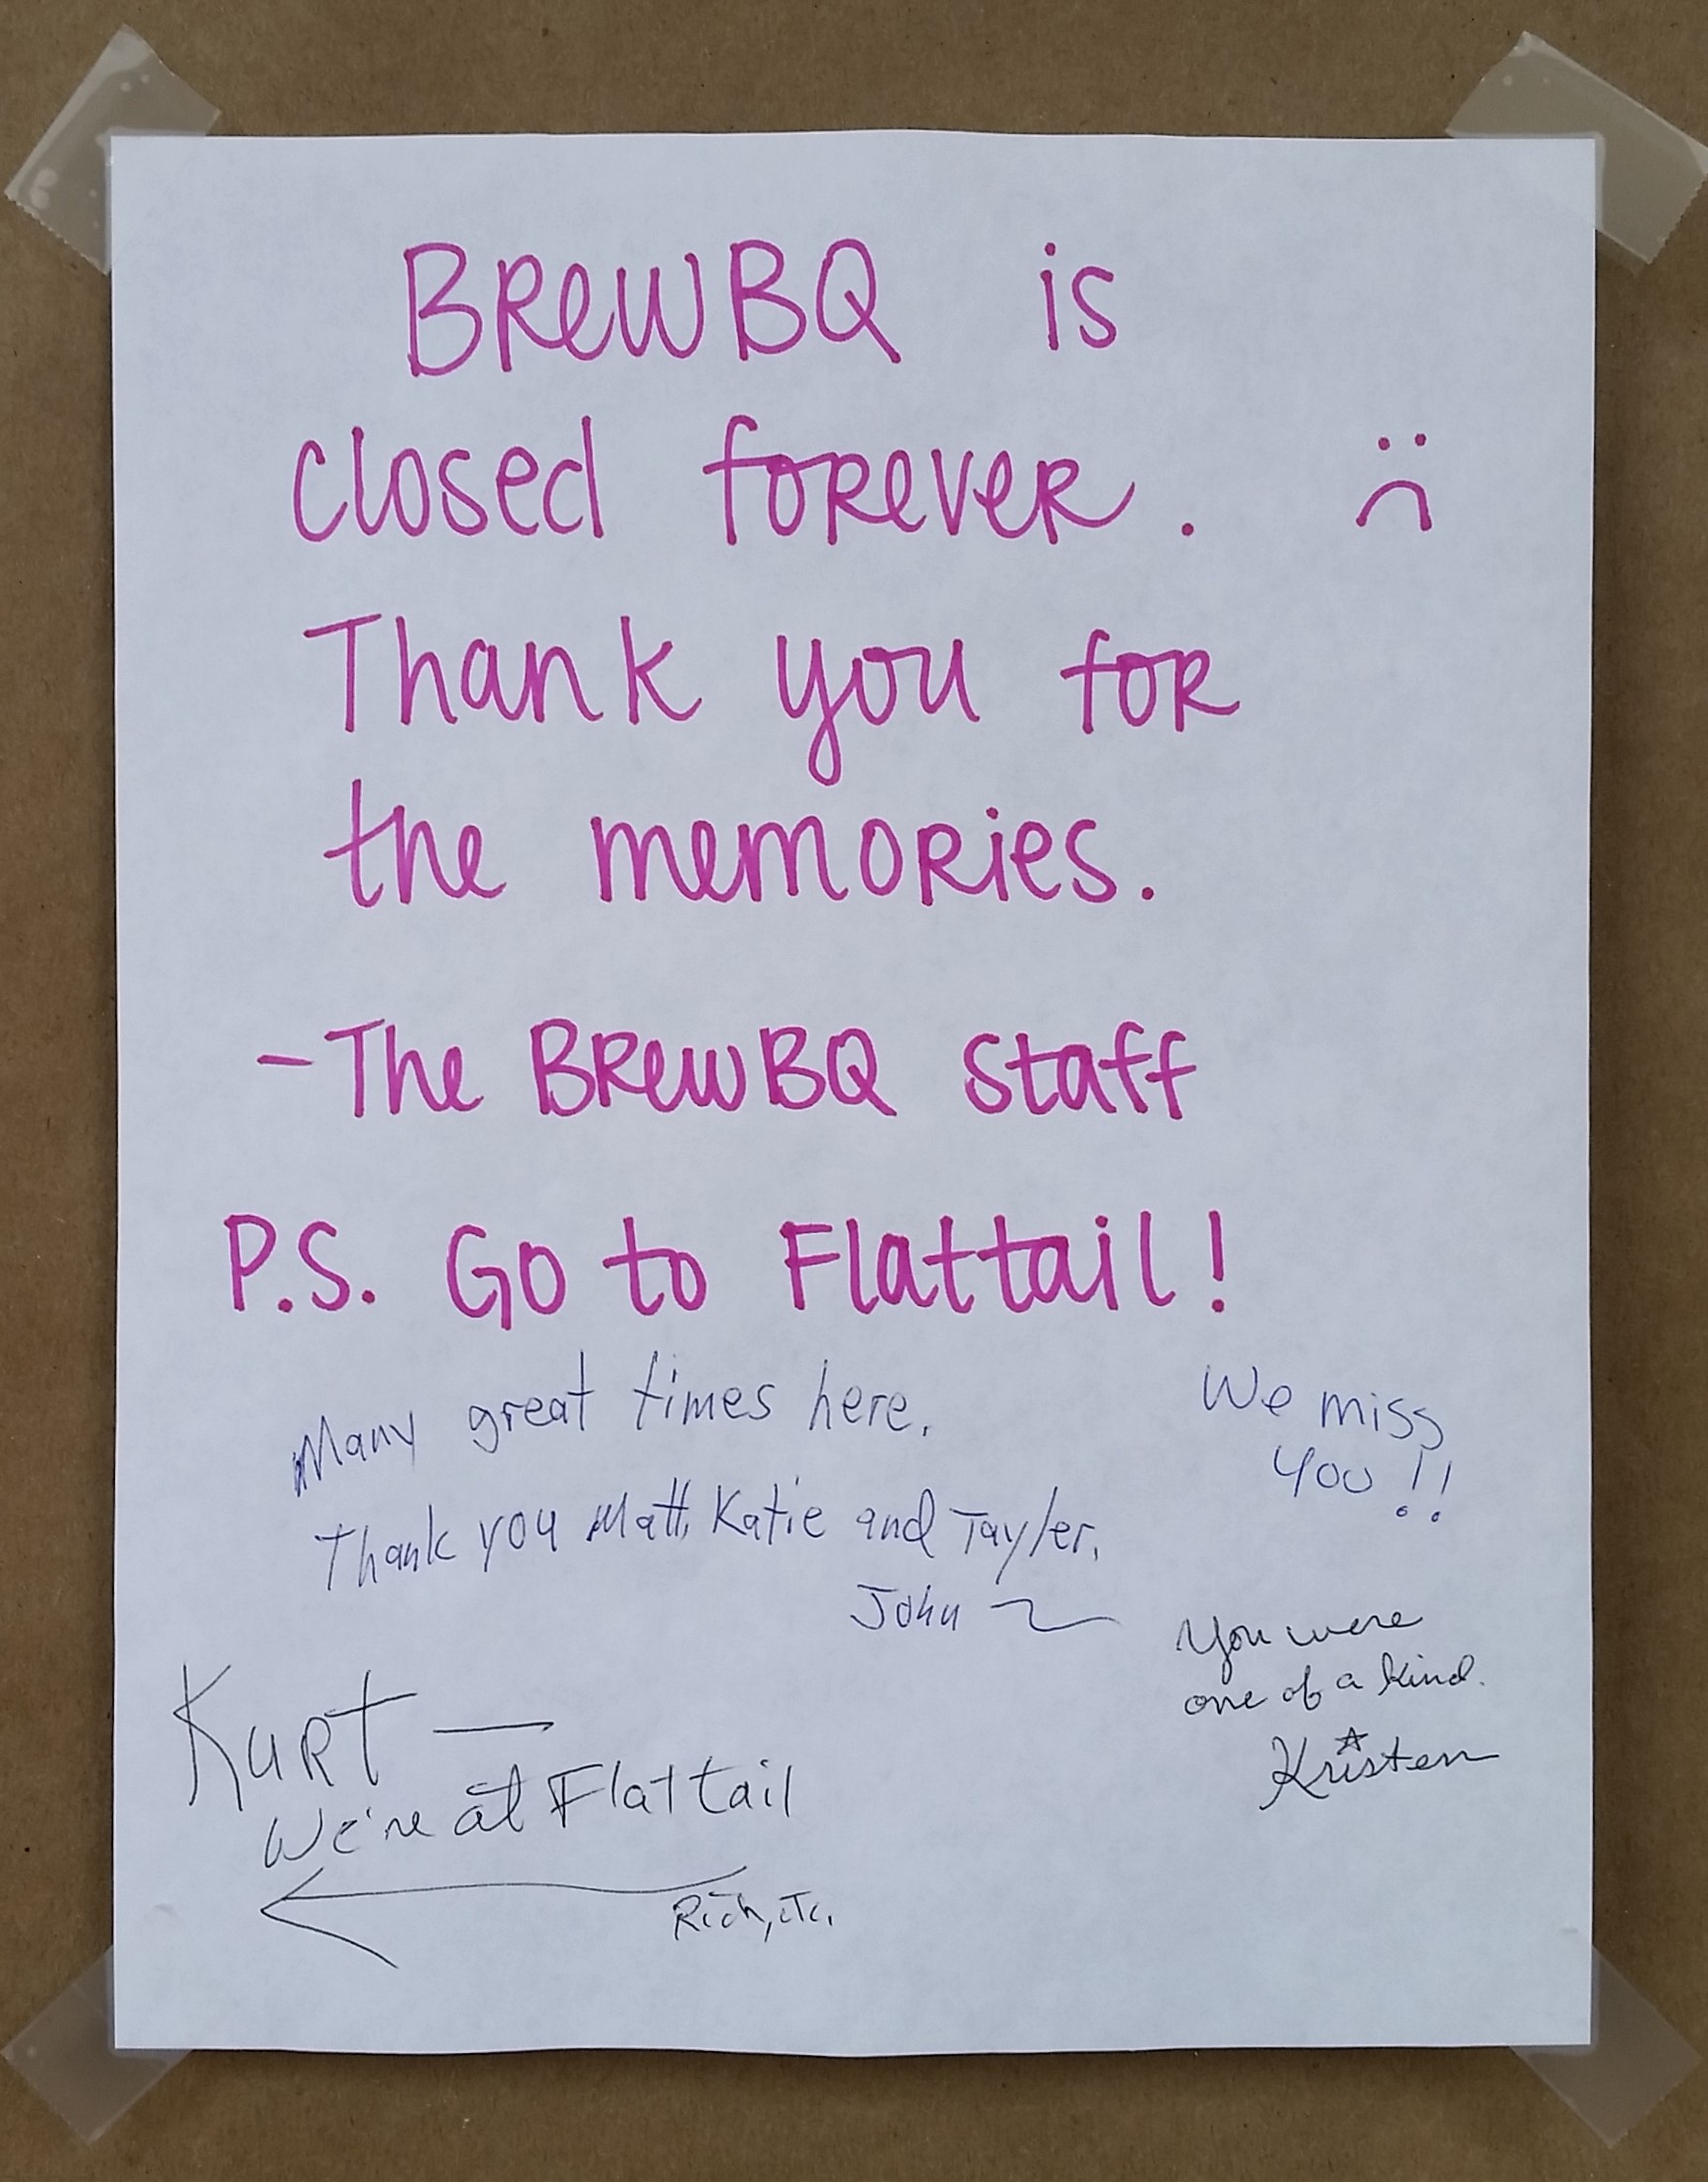 BRewBQ is
closed foRever. :(
Thank you foR
the memoRies.
- The BRewBQ staff
P.S. Go to Flattail!
Many great times here.
Thank you Matt, Katie and Tayler.
John
We miss
you!!
You were
one of a kind.
Kristen
KuRt —
We're at Flattail
Rich, etc.